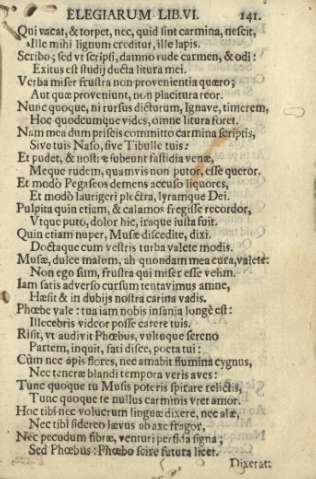 ELEGIARUM LIB. VI. 141.
Qui vacat, & torpet, nec, quid sint carmina, nescit,
Ille mihi lignum creditur, ille lapis.
Scribo; sed vt scripsi, damno rude carmen, & odi:
Exitus est studij ducta litura mei.
Verba miser frustra non provenientia quæro;
Aut quæ proveniunt, non placitura reor.
Nunc quoque, ni rursus dictorum, Ignave, timerem,
Hoc quodcumque vides, omne litura foret.
Nam mea dum priscis committo carmina scriptis,
Sive tuis Naso, sive Tibulle tuis:
Et pudet, & nostræ subeunt fastidia venæ,
Meque rudem, quamvis non putor, esse queror.
Et modò Pegaseos demens accuso liquores,
Et modò laurigeri plectra, lyramque Dei.
Pulpita quin etiam, & calamos fregisse recordor,
Vtque puto, dolor hic, iraque iusta fuit.
Quin etiam nuper, Musæ discedite, dixi.
Doctaque cum vestris turba valete modis.
Musæ, dulce malum, ah quondam mea cura, valete:
Non ego sum, frustra qui miser esse velim.
Iam satis adverso cursum tentavimus amne,
Hæsit & in dubijs nostra carina vadis.
Phœbe vale: tua iam nobis insania longè est:
Illecebris videor posse carere tuis.
Risit, vt audivit Phœbus, vultuque sereno
Partem, inquit, fati disce, poeta tui:
Cùm nec apis flores, nec amabit flumina cygnus,
Nec teneræ blandi tempora veris aves:
Tunc quoque tu Musis poteris spirare relictis,
Tunc quoque te nullus carminis vret amor.
Hoc tibi nec volucrum linguæ dixere, nec alæ,
Nec tibi sidereo lævus ab axe fragor,
Nec pecudum fibræ, venturi perfida signa;
Sed Phœbus: Phœbo scire futura licet.
Dixerat: